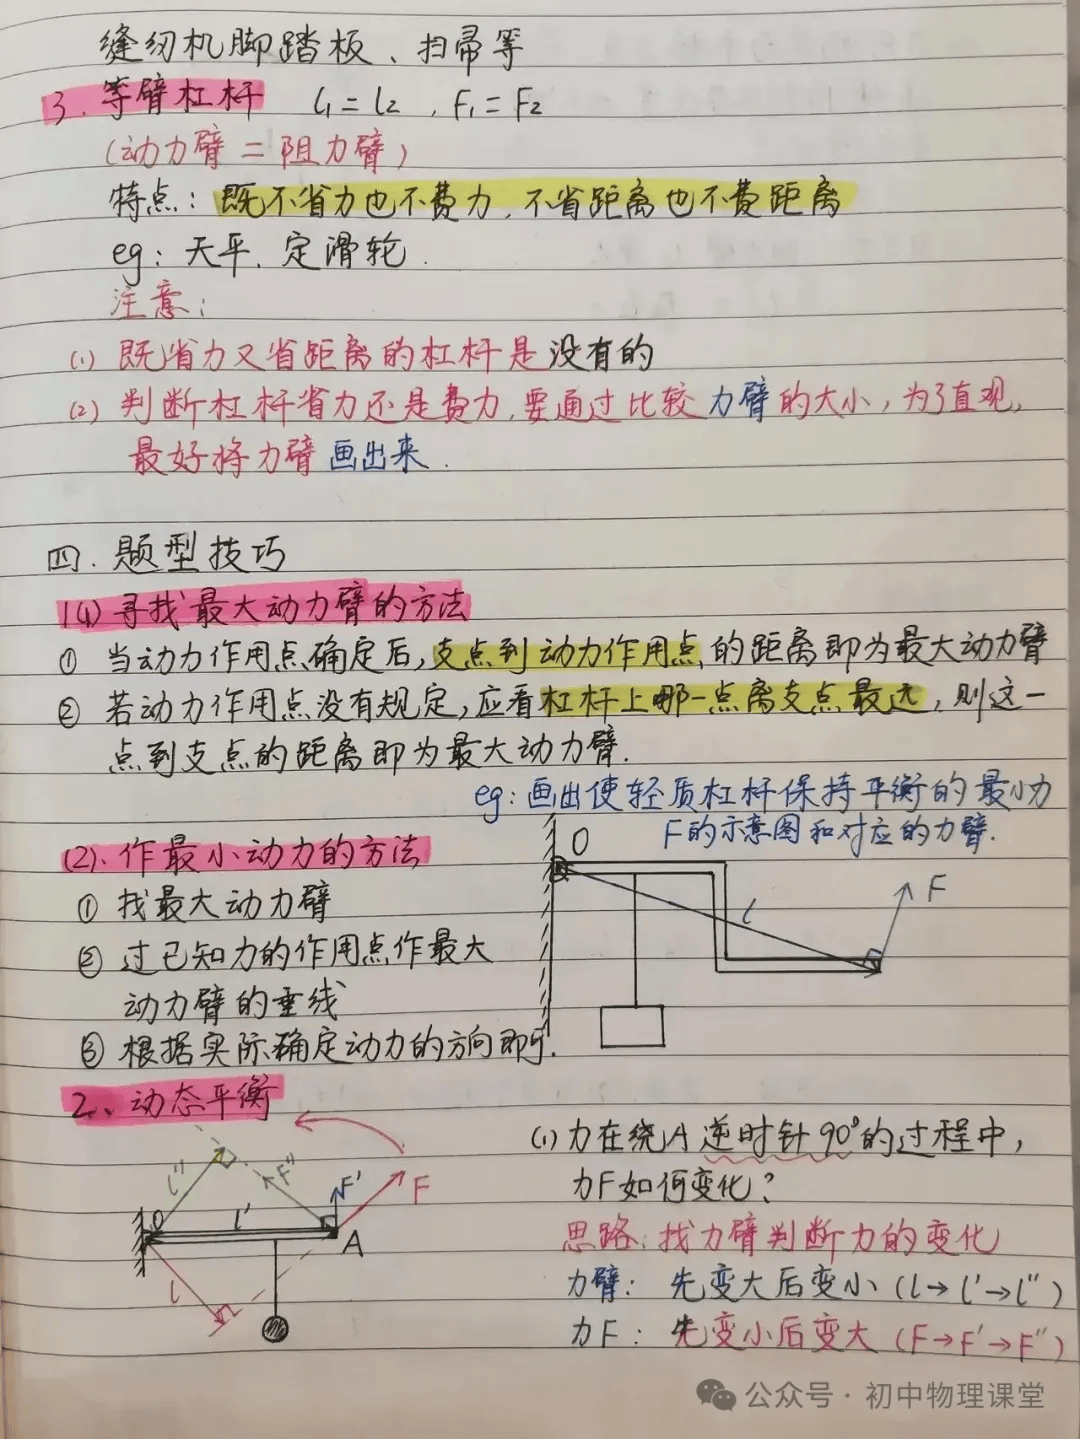 缝纫机脚踏板、扫帚等
3. 等臂杠杆 l₁=l₂, F₁=F₂
(动力臂=阻力臂)
特点:既不省力也不费力,不省距离也不费距离
eg:天平.定滑轮.
注意:
(1) 既省力又省距离的杠杆是没有的
(2) 判断杠杆省力还是费力,要通过比较力臂的大小,为了直观,
最好将力臂画出来.
四.题型技巧
1(1)寻找最大动力臂的方法
① 当动力作用点确定后,支点到动力作用点的距离即为最大动力臂
② 若动力作用点没有规定,应看杠杆上哪一点离支点最远,则这一
点到支点的距离即为最大动力臂.
eg:画出使轻质杠杆保持平衡的最小力
F的示意图和对应的力臂.
(2).作最小动力的方法
① 找最大动力臂
② 过已知力的作用点作最大
动力臂的垂线
③ 根据实际确定动力的方向即可.
O
l
F
2、动态平衡
(1)力在绕A逆时针90°的过程中,
力F如何变化?
思路:找力臂判断力的变化
力臂: 先变大后变小(l→l'→l'')
力F: 先变小后变大(F→F'→F'')
l''
F''
F'
F
O
l'
A
l
公众号·初中物理课堂